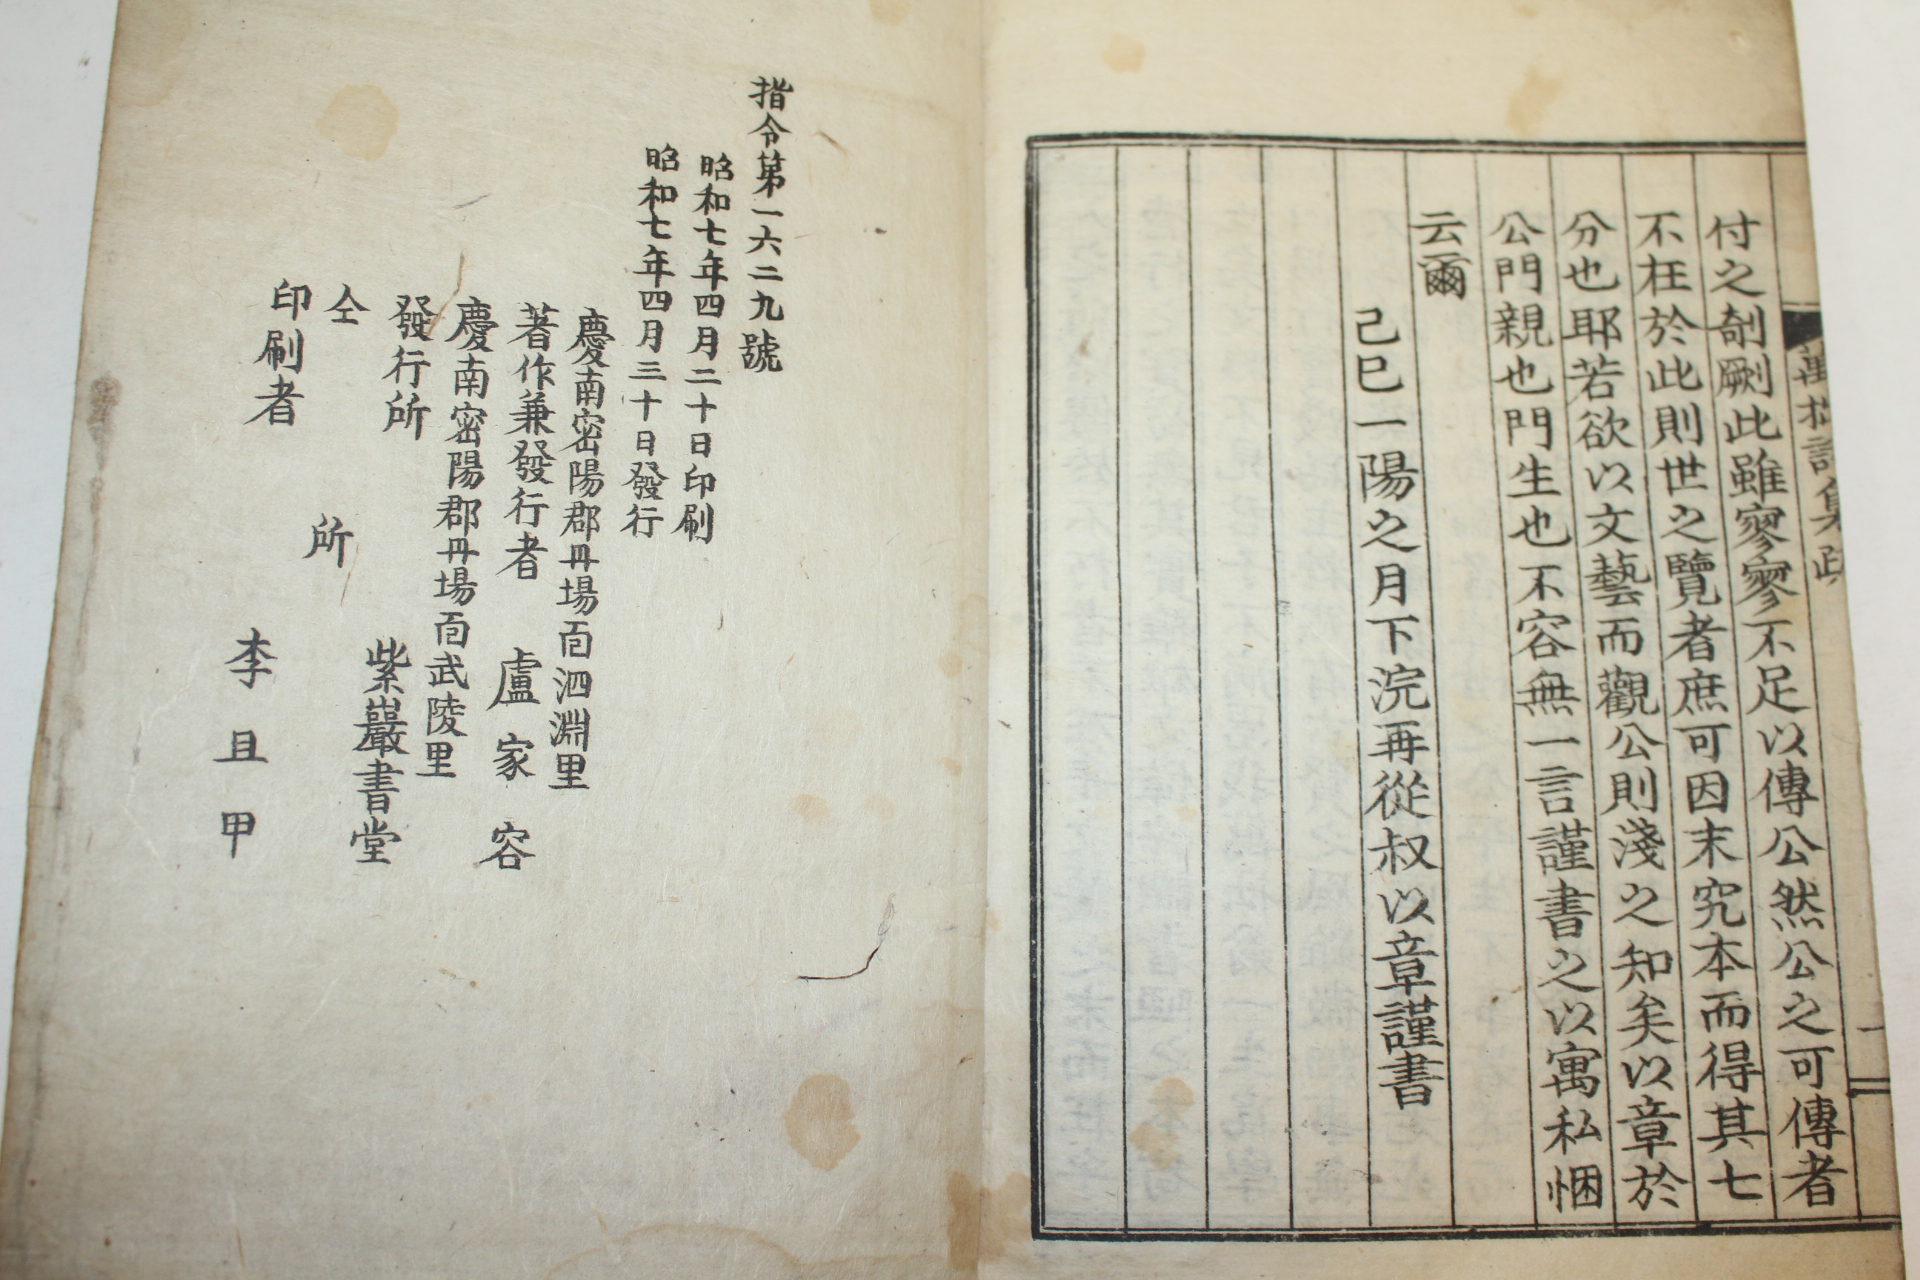 付之剞劂此雖寥寥不足以傳公然公之可傳者
不枉於此則世之覽者庶可因末究本而得其七
分也耶若欲以文藝而觀公則淺之知矣以章於
公門親也門生也不容無一言謹書之以寓私悃
云爾
己巳一陽之月下浣再從叔以章謹書
指令第一六二九號
昭和七年四月二十日印刷
昭和七年四月三十日發行
慶南密陽郡丹場面泗淵里
著作兼發行者 盧家容
慶南密陽郡丹場面武陵里
發行所 紫巖書堂
仝 所
印刷者 李且甲